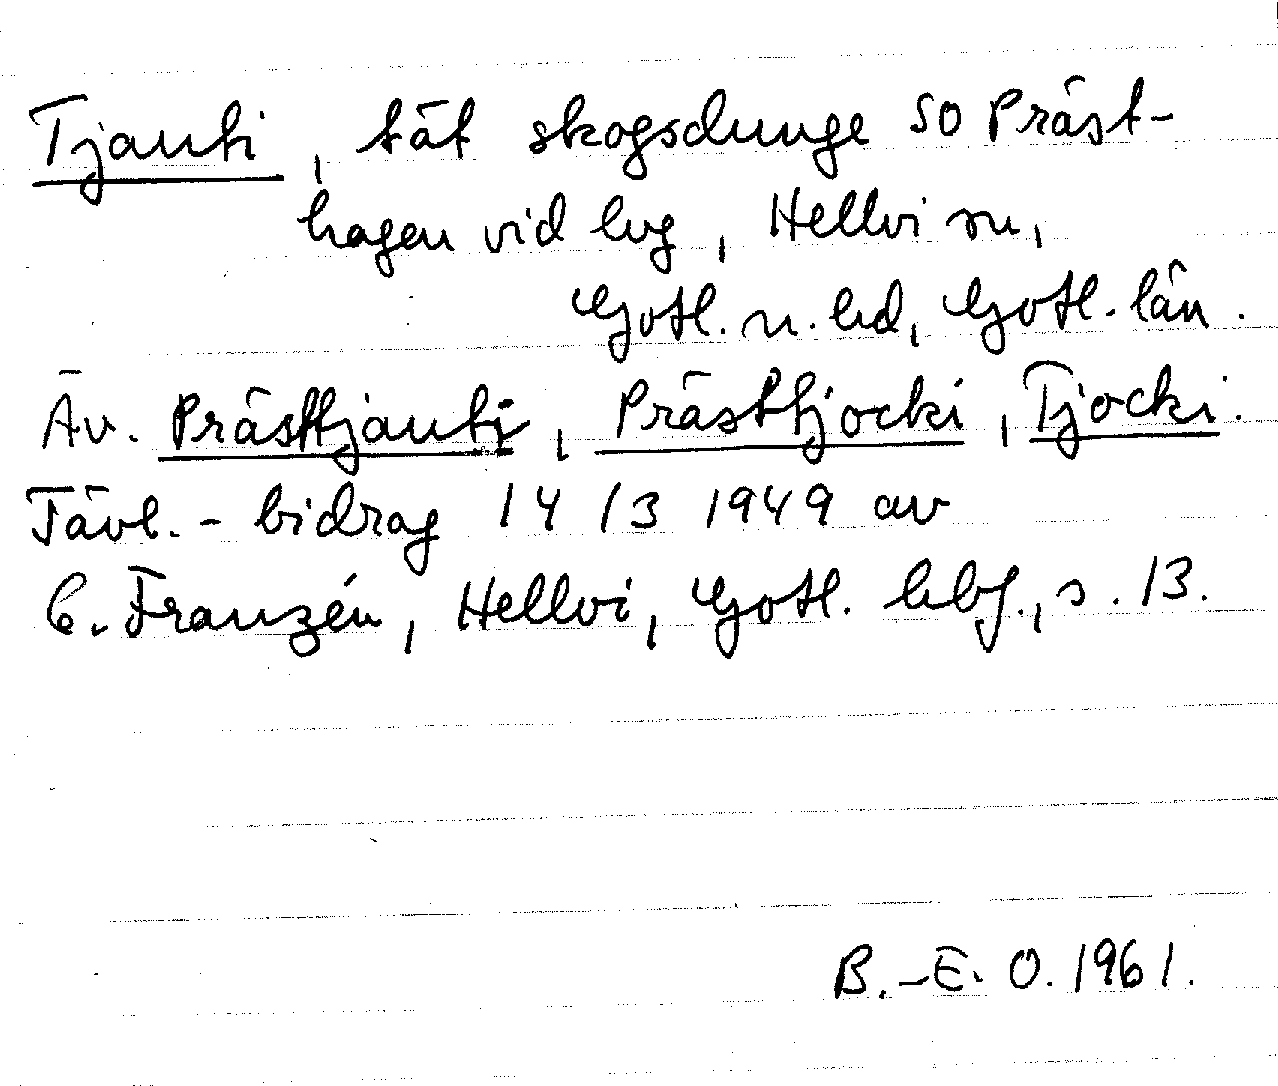 Tjauki, tät skogsdunge SO Präst-
hagen vid lvg, Hellvi sn,
Gotl. n. hd, Gotl. län.
Äv. Prästtjauki, Prästtjocki, Tjocki.
Tävl.- bidrag 14/3 1949 av
C. Franzén, Hellvi, Gotl. hbf., s. 13.
B.-E. O. 1961.